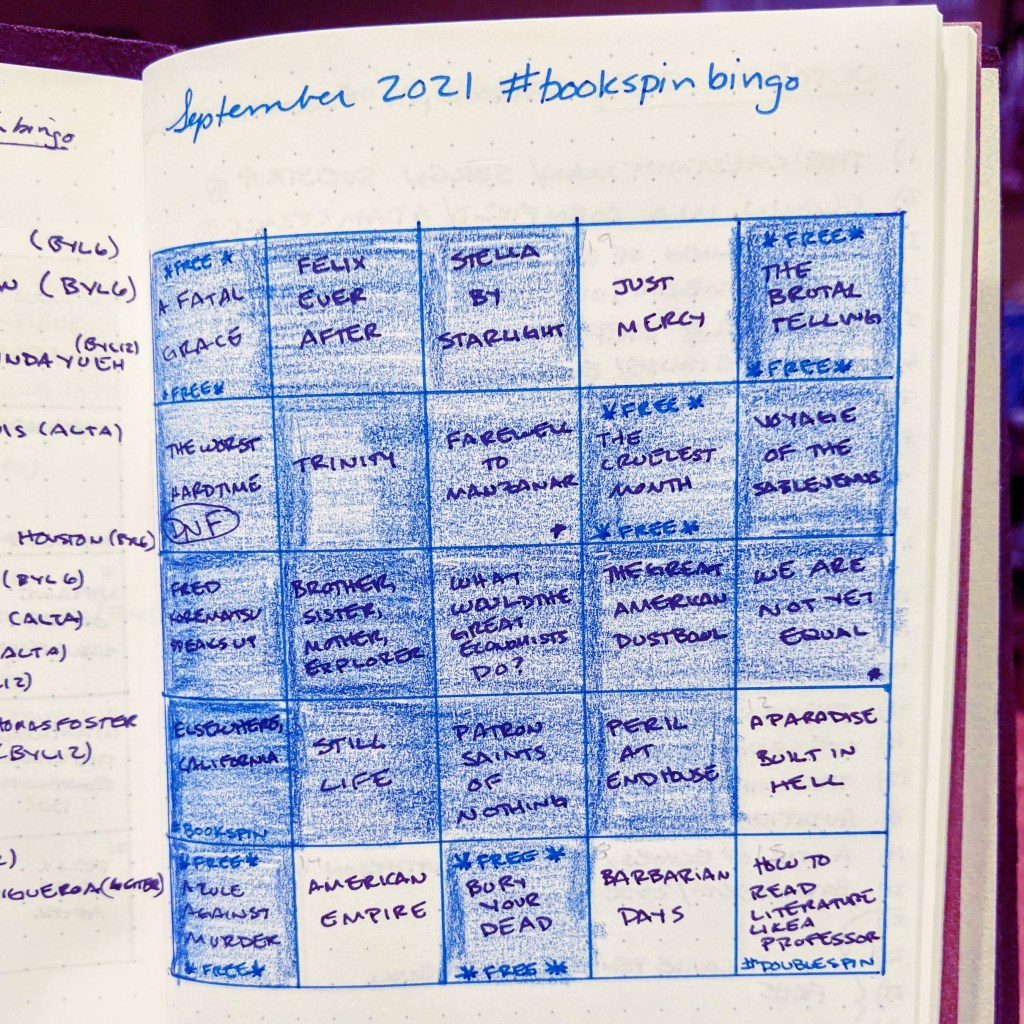 September 2021 #bookspinbingo
bingo
(BYL6)
(BYL6)
(BYL12)
(ALTA)
HOUSTON
(BYL6)
(ALTA)
THOMAS FOSTER
(BYL12)
*FREE*
A FATAL
GRACE
*FREE*
FELIX
EVER
AFTER
STELLA
BY
STARLIGHT
19
JUST
MERCY
*FREE*
THE
BRUTAL
TELLING
*FREE*
THE WORST
HARD TIME
DNF
TRINITY
FAREWELL
TO
MANZANAR
*FREE*
THE
CRUELEST
MONTH
*FREE*
VOYAGE
OF THE
SABLE VENUS
FRED
KOREMATSU
SPEAKS UP
BROTHER,
SISTER,
MOTHER,
EXPLORER
WHAT
WOULD THE
GREAT
ECONOMISTS
DO?
THE GREAT
AMERICAN
DUST BOWL
WE ARE
NOT YET
EQUAL
ELSEWHERE,
CALIFORNIA
#BOOKSPIN
STILL
LIFE
PATRON
SAINTS
OF
NOTHING
PERIL
AT
END HOUSE
12
A PARADISE
BUILT IN
HELL
*FREE*
A RULE
AGAINST
MURDER
*FREE*
AMERICAN
EMPIRE
*FREE*
BURY
YOUR
DEAD
*FREE*
BARBARIAN
DAYS
15
HOW TO
READ
LITERATURE
LIKE A
PROFESSOR
#DOUBLESPIN